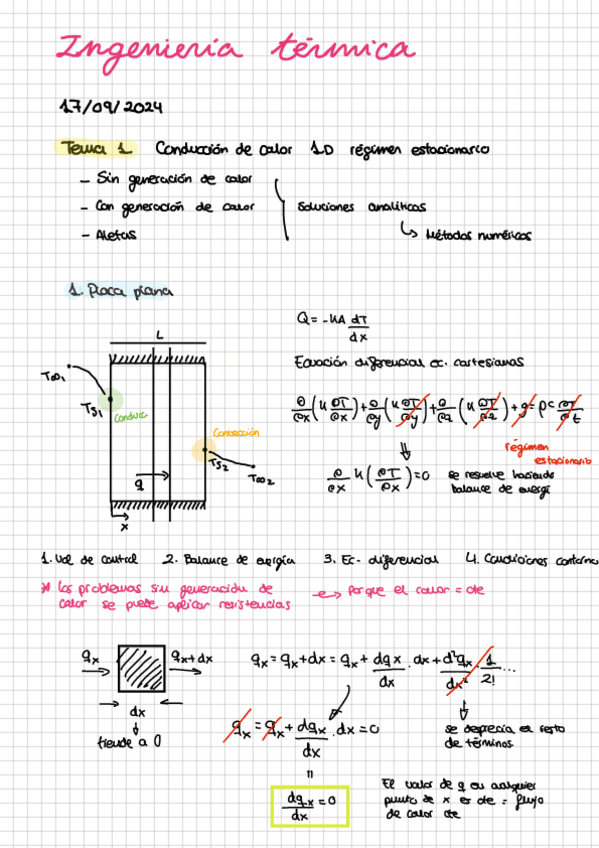 Ingeniería térmica
17/09/2024
Tema 1 Conducción de calor 1D régimen estacionario
- Sin generación de calor
- Con generación de calor
- Aletas
soluciones analíticas
↳ Métodos numéricos
1. Placa plana
L
T∞1
Ts1
Conducc
Convección
Ts2
T∞2
q
x
Q = -kA dT/dx
Ecuación diferencial ec. cartesianas
∂/∂x (k ∂T/∂x) + ∂/∂y (k ∂T/∂y) + ∂/∂z (k ∂T/∂z) + g = ρc ∂T/∂t
régimen
estacionario
∂/∂x k (∂T/∂x) = 0
se resuelve haciendo
balance de energí
1. Vol de control 2. Balance de energía 3. Ec. diferencial 4. Condiciones contorno
* Los problemas sin generación de
calor se puede aplicar resistencias
→ Porque el calor = cte
qx
qx+dx
dx
tiende a 0
qx = qx+dx = qx + dqx/dx . dx + d²qx/dx² . 1/2! ...
qx = qx + dqx/dx . dx = 0
se deprecia el resto
de términos
"
dqx/dx = 0
El valor de q en cualquier
punto de x es cte = flujo
de calor cte